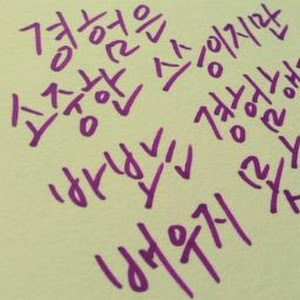 경험은
소중한 스승이지만
바보는 경험해
배우지 못